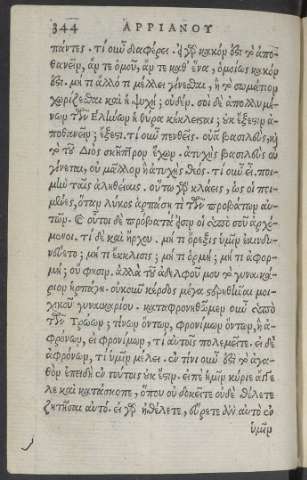 344 ΑΡΡΙΑΝΟΥ
πάντες. τί οὖν διαφέρει. ἢ γὰρ κακόν ἐστι τὸ ἀπο-
θανεῖν, ἄν τε ὁμοῦ, ἄν τε καθ' ἕνα, ὁμοίως κακόν
ἐστι. μή τι ἄλλό τι μέλλει γίνεσθαι, ἢ τὸ σωμάτιον
χωρίζεσθαι καὶ ἡ ψυχή; οὐδέν. σοὶ δὲ ἀπολλυμέ-
νων τῶν Ἑλλήνων ἡ θύρα κέκλεισται; οὐκ ἔξεστιν ἀ-
ποθανεῖν; ἔξεστι. τί οὖν πενθεῖς. οὐᾶ βασιλεὺς, καὶ
τὸ τοῦ Διὸς σκῆπτρον ἔχων. ἀτυχὴς βασιλεὺς οὐ
γίνεται, οὐ μᾶλλον ἢ ἀτυχὴς θεός. τί οὖν εἶ. ποι-
μὴν ταῖς ἀληθείαις. οὕτω γὰρ κλάεις, ὡς οἱ ποι-
μένες, ὅταν λύκος ἁρπάσῃ τι τῶν προβάτων αὐ-
τῶν. καὶ οὗτοι δὲ πρόβατά εἰσιν οἱ ὑπὸ σοῦ ἀρχό-
μενοι. τί δὲ καὶ ἤρχου. μή τι ὄρεξις ὑμῖν ἐκινδυ-
νεύετο; μή τι ἔκκλισις; μή τι ὁρμή; μή τι ἀφορ-
μή; οὔ φησιν. ἀλλὰ τοῦ ἀδελφοῦ μου τὸ γυναικά-
ριον ἡρπάγη. οὐκοῦν κέρδος μέγα στερηθῆναι μοι-
χικοῦ γυναικαρίου. καταφρονηθῶμεν οὖν ὑπὸ
τῶν Τρώων; τίνων ὄντων, φρονίμων ὄντων, ἢ ἀ-
φρόνων, εἰ φρονίμων, τί αὐτοῖς πολεμεῖτε. εἰ δὲ
ἀφρόνων, τί ὑμῖν μέλει. ἐν τίνι οὖν ἐστι τὸ ἀγα-
θὸν ἐπειδὴ ἐν τούτοις οὐκ ἔστιν. εἰπὲ ἡμῖν κύριε ἄγγε
λε καὶ κατάσκοπε, ὅπου οὐ δοκεῖτε οὐδὲ θέλετε
ζητῆσαι αὐτό. εἰ γὰρ ἠθέλετε, εὕρετε ἂν αὐτὸ ἐν
ὑμῖν